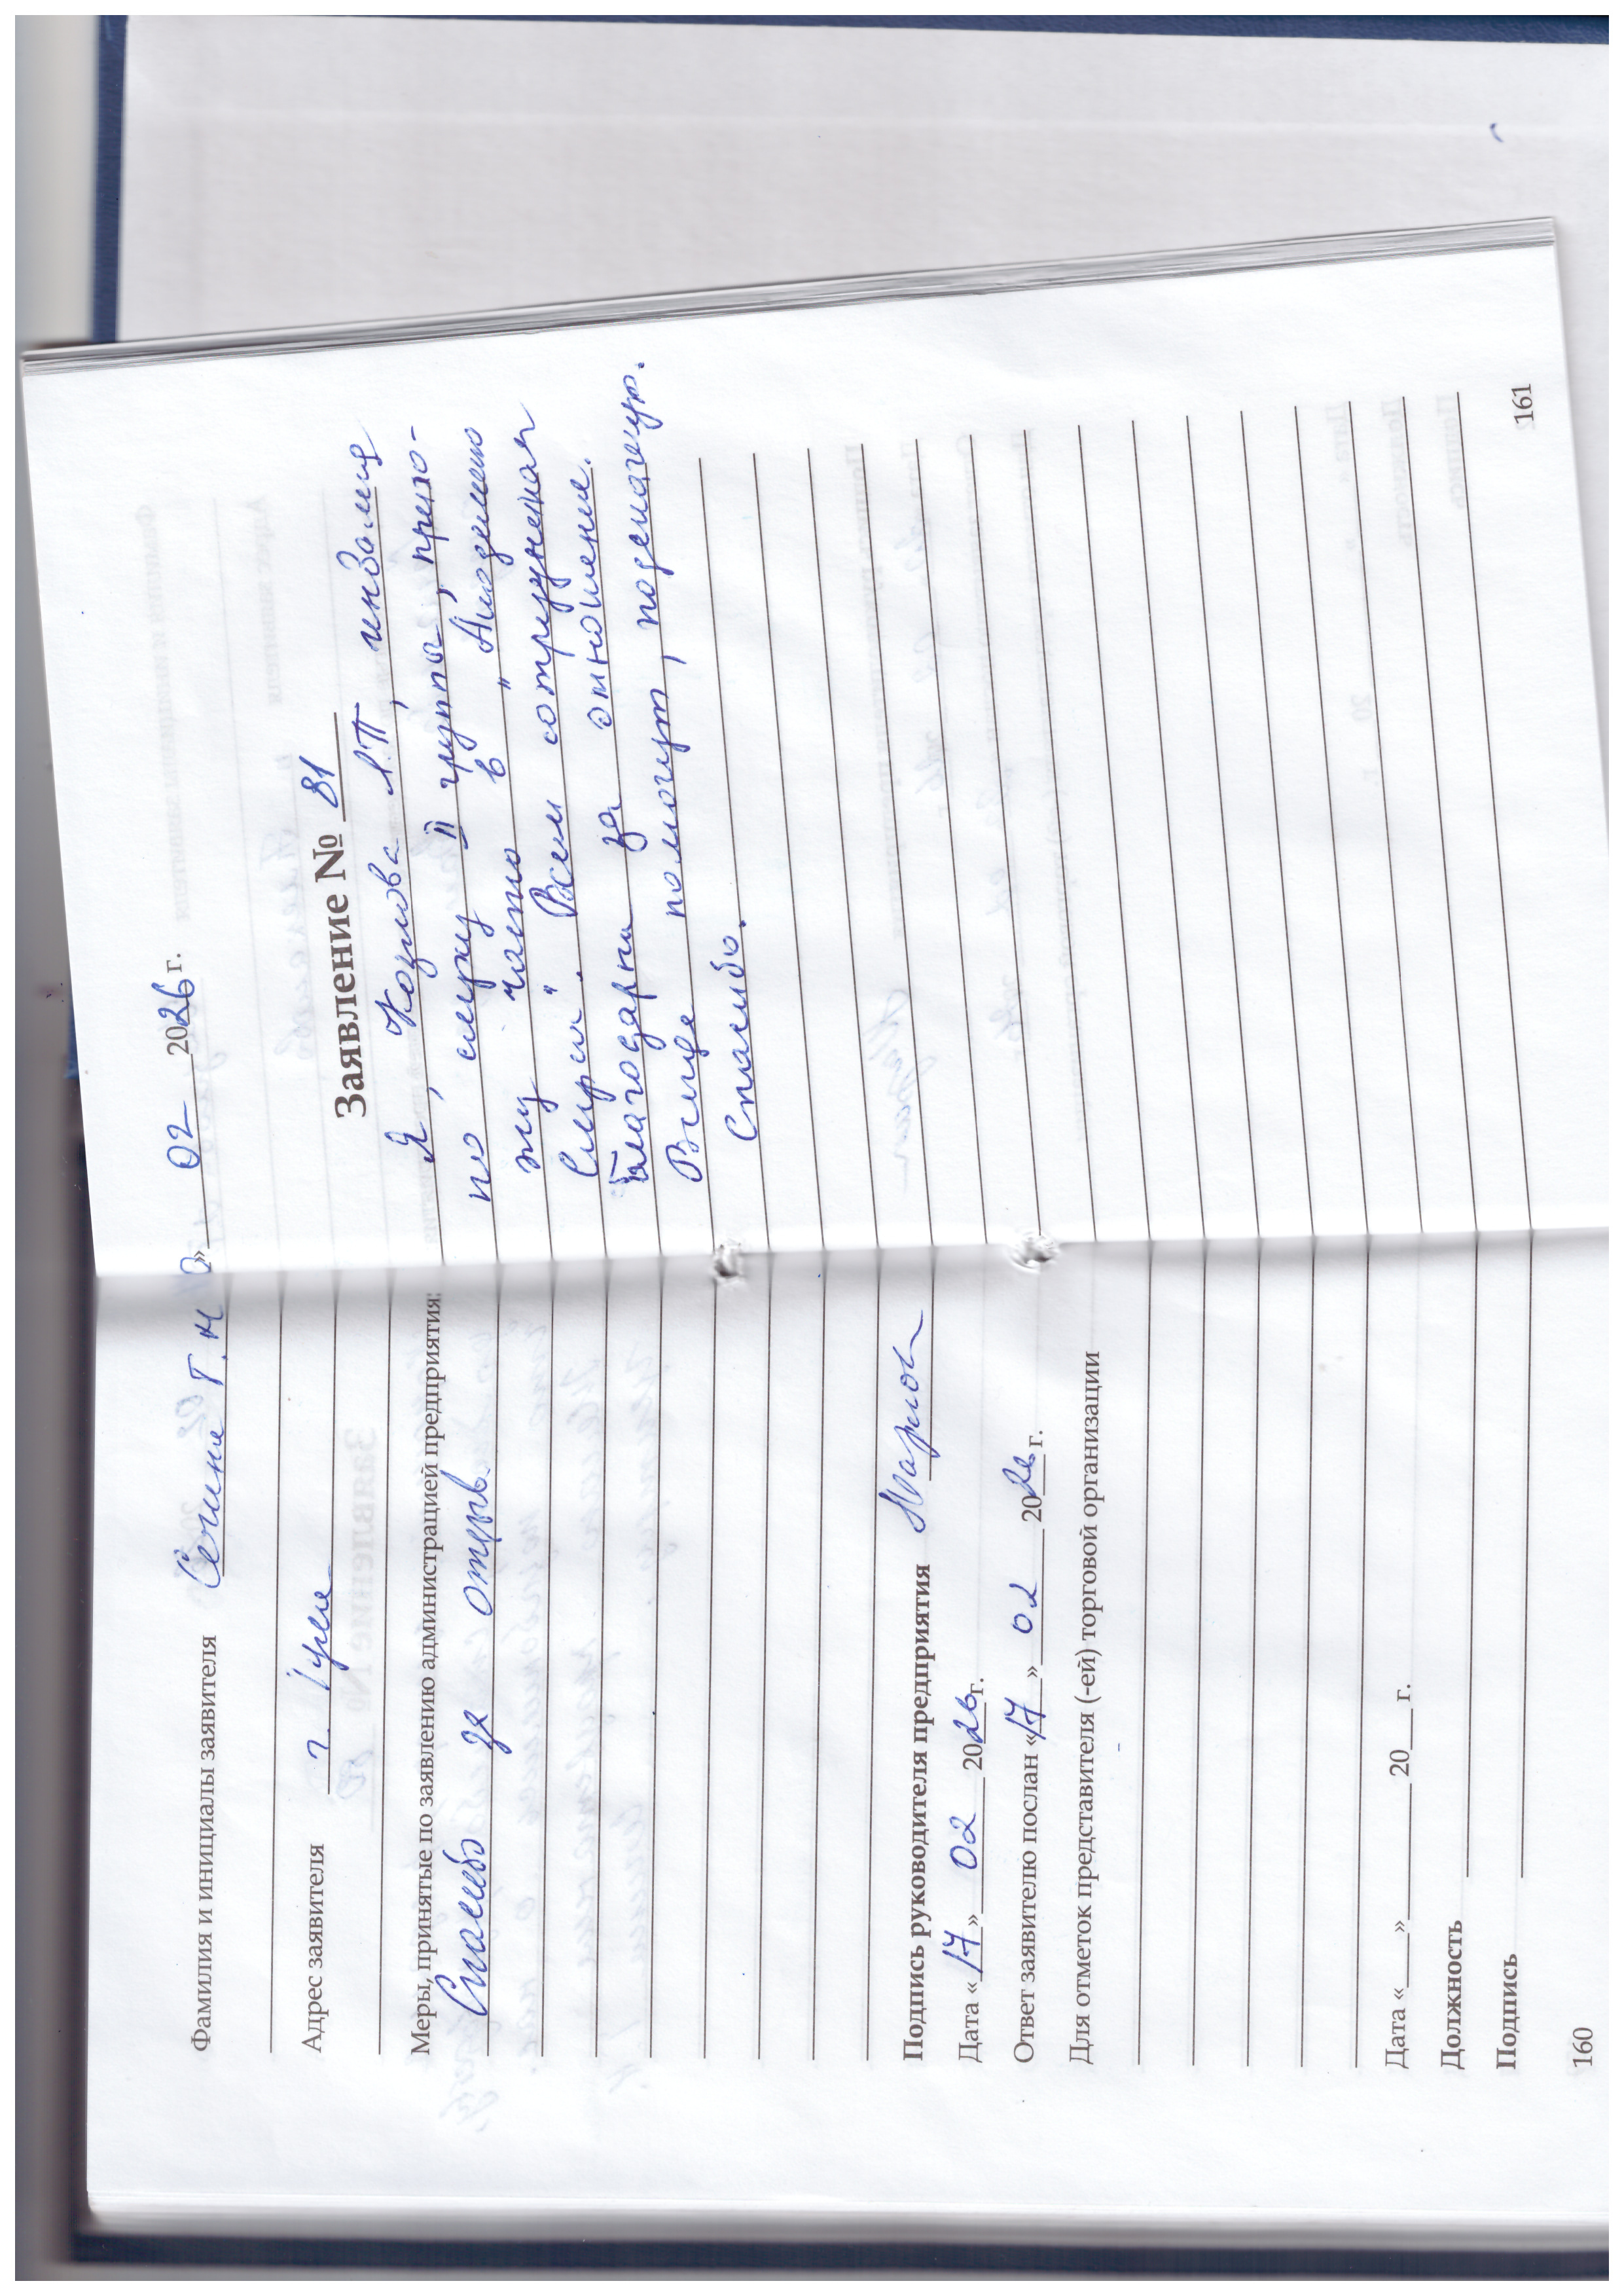 Фамилия и инициалы заявителя Сечина Г. Н
Адрес заявителя г. Гурьев
Меры, принятые по заявлению администрацией предприятия:
Спасибо за отзыв.
Подпись руководителя предприятия
Дата «17» 02 2026г.
Ответ заявителю послан «17» 02 2026г.
Для отметок представителя (-ей) торговой организации
Дата « » 20 г.
Должность
Подпись
160
» 02 2026г.
Заявление № 81
Я, Козлова Л.П, инвалид
по слуху II группы, прихо-
жу часто в "
". Всем сотрудникам
благодарна за отношение.
Всегда помогут, подскажут.
Спасибо.
161